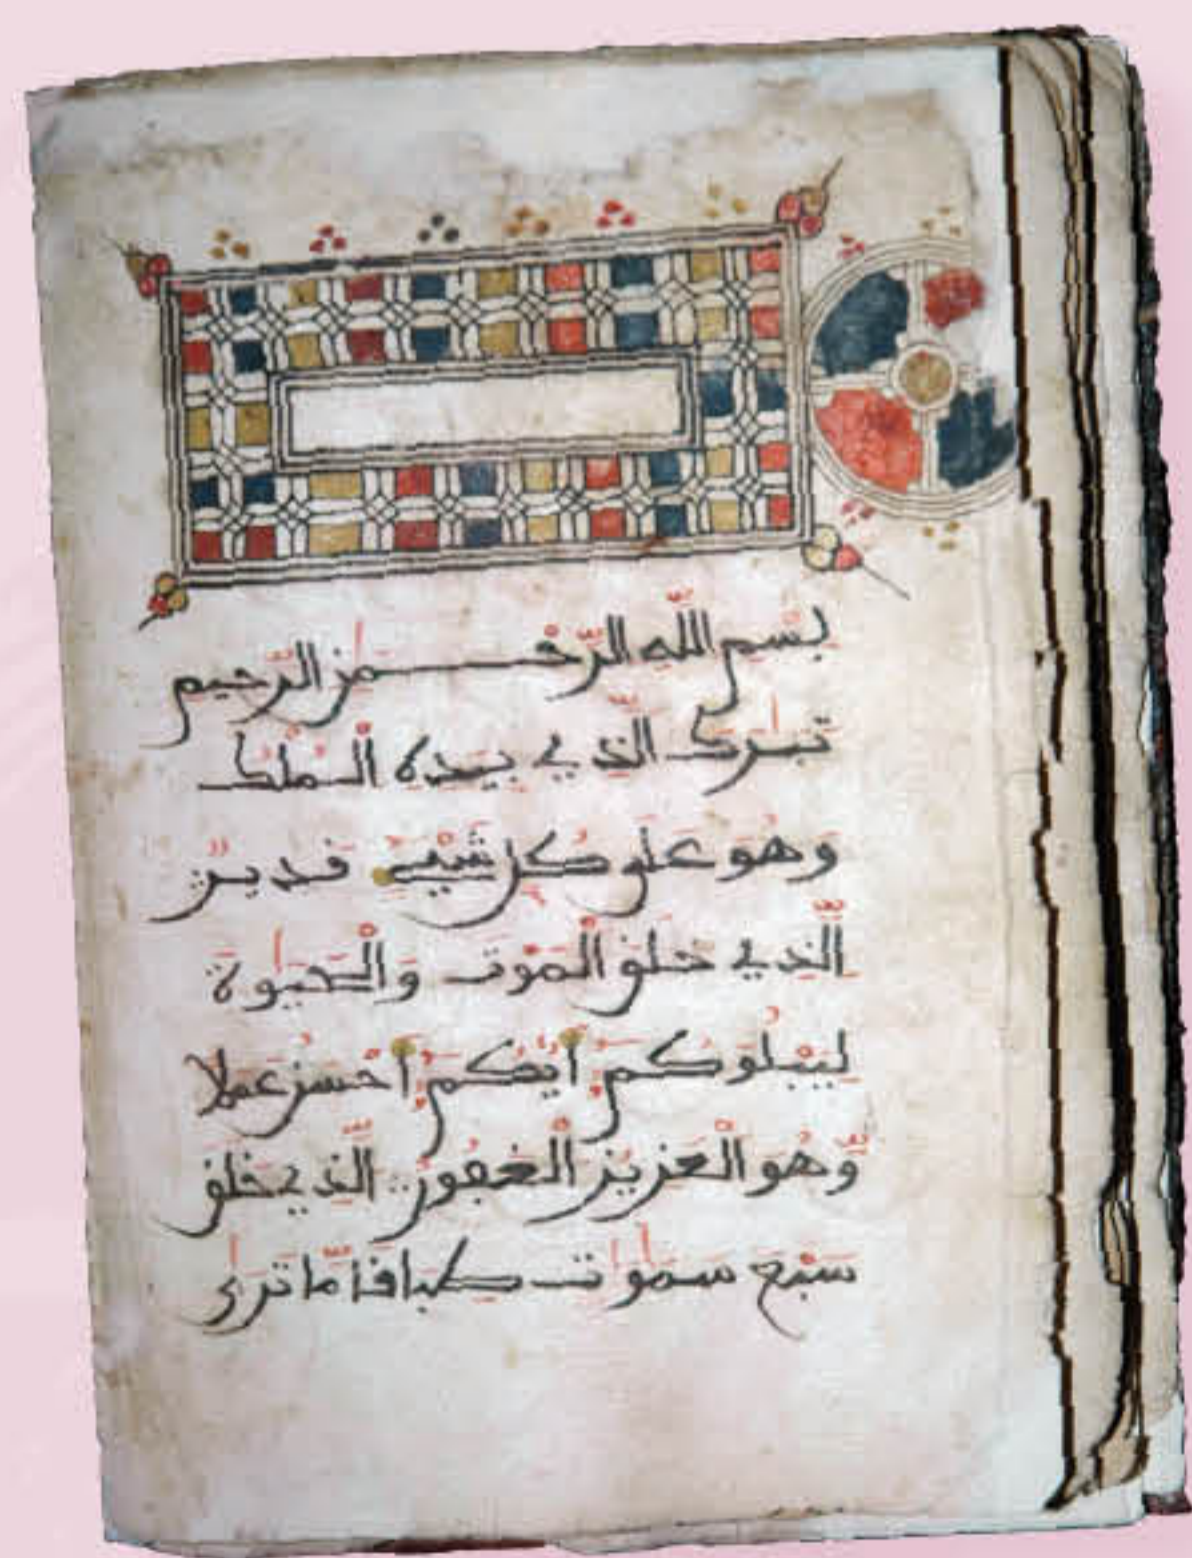 بِسْمِ اللَّهِ الرَّحْمَٰنِ الرَّحِيمِ
تَبَٰرَكَ الَّذِي بِيَدِهِ الْمُلْكُ
وَهُوَ عَلَى كُلِّ شَيْءٍ قَدِيرٌ
الَّذِي خَلَقَ الْمَوْتَ وَالْحَيَوٰةَ
لِيَبْلُوَكُمُ أَيُّكُمُ أَحْسَنُ عَمَلًا
وَهُوَ الْعَزِيزُ الْغَفُورُ الَّذِي خَلَقَ
سَبْعَ سَمَٰوَٰتٍ طِبَاقًا مَّا تَرَىٰ